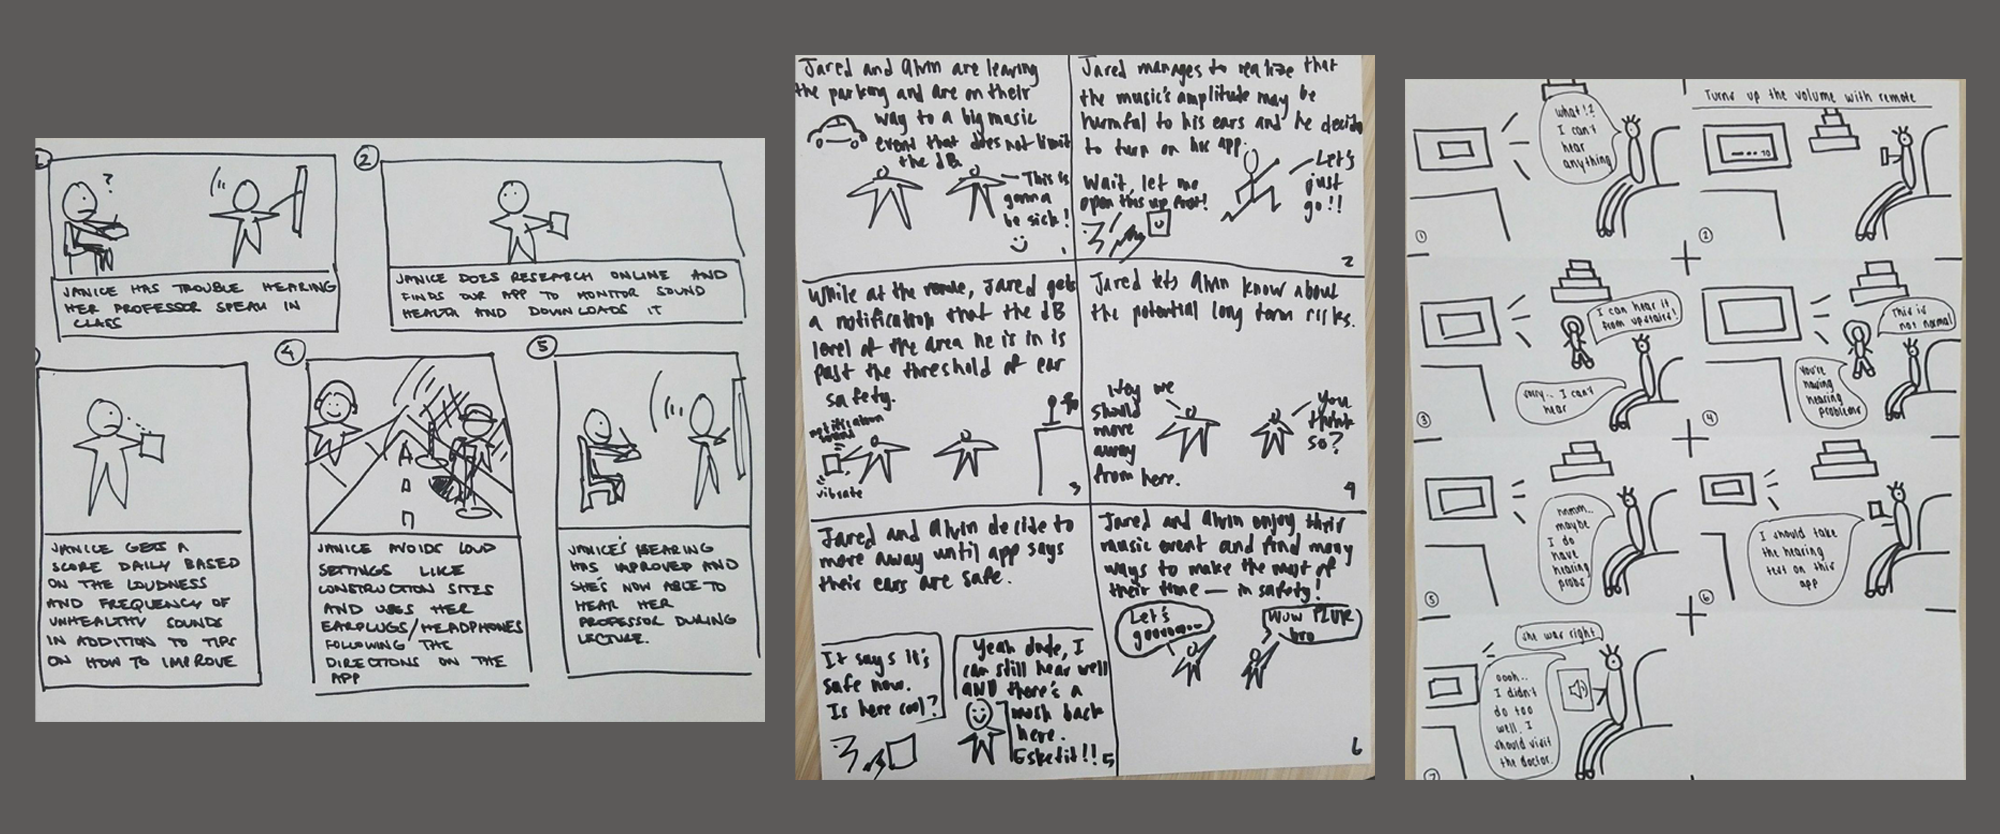 ?
JANICE HAS TROUBLE HEARING
HER PROFESSOR SPEAK IN
CLASS
2
JANICE DOES RESEARCH ONLINE AND
FINDS OUR APP TO MONITOR SOUND
HEALTH AND DOWNLOADS IT
JANICE GETS A
SCORE DAILY BASED
ON THE LOUDNESS
AND FREQUENCY OF
UNHEALTHY SOUNDS
IN ADDITION TO TIPS
ON HOW TO IMPROVE
4
JANICE AVOIDS LOUD
SETTINGS LIKE
CONSTRUCTION SITES
AND USES HER
EARPLUGS/HEADPHONES
FOLLOWING THE
DIRECTIONS ON THE
APP
5
JANICE'S HEARING
HAS IMPROVED AND
SHE'S NOW ABLE TO
HEAR HER
PROFESSOR DURING
LECTURE.
Jared and Alvin are leaving
the parking and are on their
way to a big music
event that does not limit
the dB.
This is
gonna
be sick!
1
Jared manages to realize that
the music's amplitude may be
harmful to his ears and he decide
to turn on his app.
Wait, let me
open this up first!
Let's
just
go!!
2
While at the venue, Jared gets
a notification that the dB
level of the area he is in is
past the threshold of ear
safety.
notification
sound
vibrate
3
Jared lets Alvin know about
the potential long term risks.
Hey we
should
move
away
from here.
You
think
so?
4
Jared and Alvin decide to
move away until app says
their ears are safe.
It says it's
safe now.
Is here cool?
Yeah dude, I
can still hear well
AND there's a
mosh back
here.
Esketit!!
5
Jared and Alvin enjoy their
music event and find many
ways to make the most of
their time — in safety!
Let's
gooooooo
Wow PLUR
bro
6
what!?
I can't
hear
anything
1
Turns up the volume with remote
70
2
I can hear it
from upstairs!
sorry.. I can't
hear
3
This is
not normal
You're
having
hearing
problems
4
hmmm..
maybe
I do
have
hearing
probs
5
I should take
the hearing
test on this
app
6
she was right
oooh..
I didn't
do too
well. I
should visit
the doctor.
7